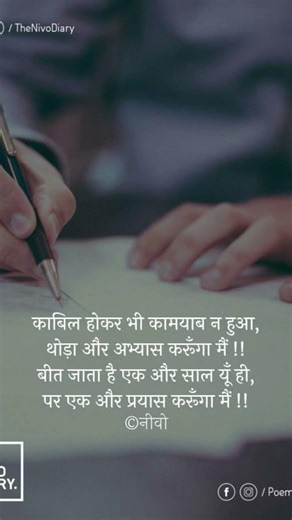 / TheNivoDiary
काबिल होकर भी कामयाब न हुआ,
थोड़ा और अभ्यास करूँगा मैं !!
बीत जाता है एक और साल यूँ ही,
पर एक और प्रयास करूँगा मैं !!
©नीवो
O
RY.
/ Poem